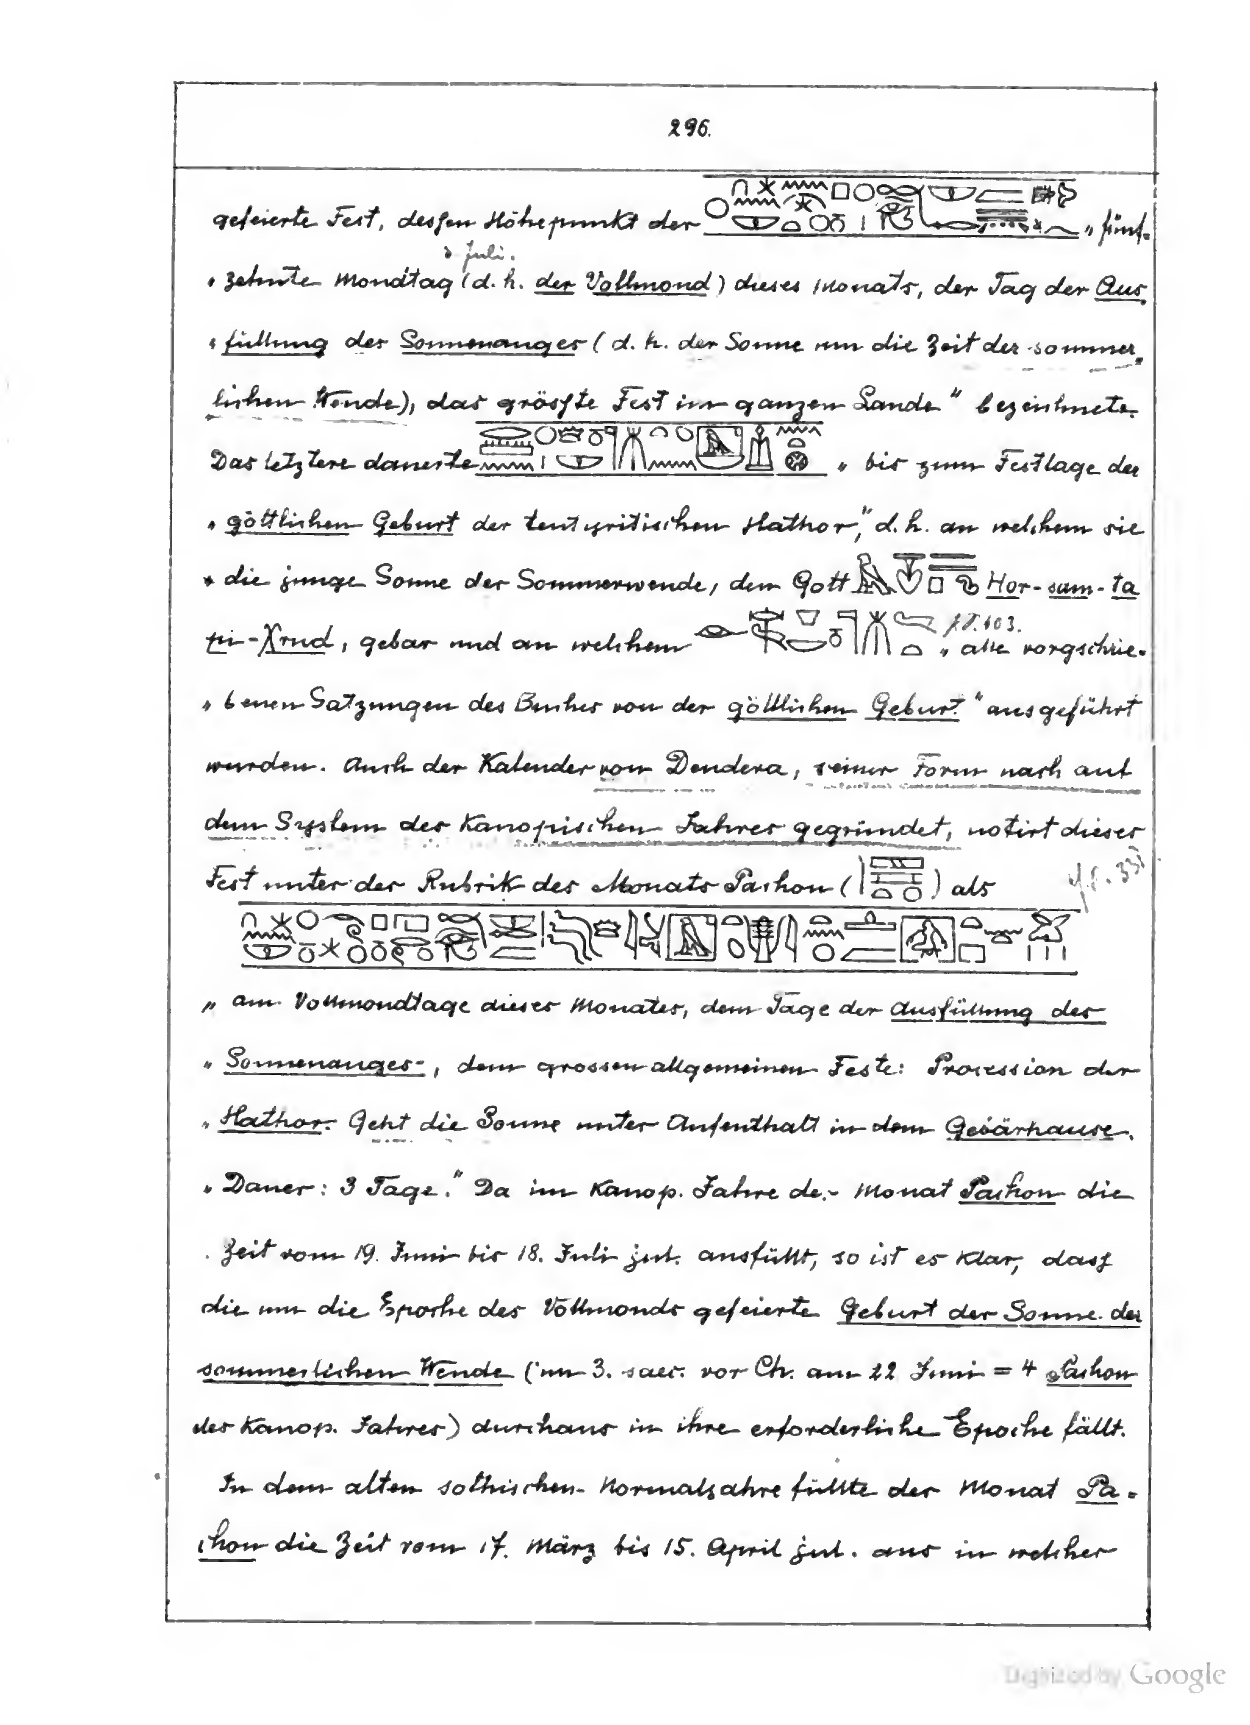 296.
gefeierte Fest, dessen Höhepunkt der „fünf-
Juli.
„zehnte Mondtag (d. h. der Vollmond) dieses Monats, der Tag der Aus-
„füllung des Sonnenauges (d. h. der Sonne um die Zeit der sommer-
lichen Wende), das grösste Fest im ganzen Lande" bezeichnete.
Das letztere dauerte „bis zum Festtage der
„göttlichen Geburt der tentyritischen Hathor," d. h. an welchem sie
„die junge Sonne der Sommerwende, den Gott Hor-sam-ta
pi-Xrud, gebar und an welchem „alle vorgschrie-
103.
„benen Satzungen des Buches von der göttlichen Geburt" ausgeführt
wurden. Auch der Kalender von Dendera, seiner Form nach auf
dem System des Kanopischen Jahres gegründet, notirt dieses
Fest unter der Rubrik des Monats Pachon ( ) als
„am Vollmondtage dieses Monates, dem Tage der Ausfüllung des
„Sonnenauges-, dem grossen allgemeinen Feste: Procession der
„Hathor. Geht die Sonne unter Aufenthalt in dem Gebärhause.
„Dauer: 3 Tage." Da im Kanop. Jahre der Monat Pachon die
Zeit vom 19. Juni bis 18. Juli jul. ausfüllt, so ist es klar, dass
die um die Epoche des Vollmonds gefeierte Geburt der Sonne der
sommerlichen Wende (im 3. saec. vor Ch. am 22 Juni = 4 Pachon
des Kanop. Jahres) durchaus in ihre erforderliche Epoche fällt.
In dem alten sothischen Normaljahre füllte der Monat Pa-
chon die Zeit vom 17. März bis 15. April jul. aus in welcher
Digitized by Google